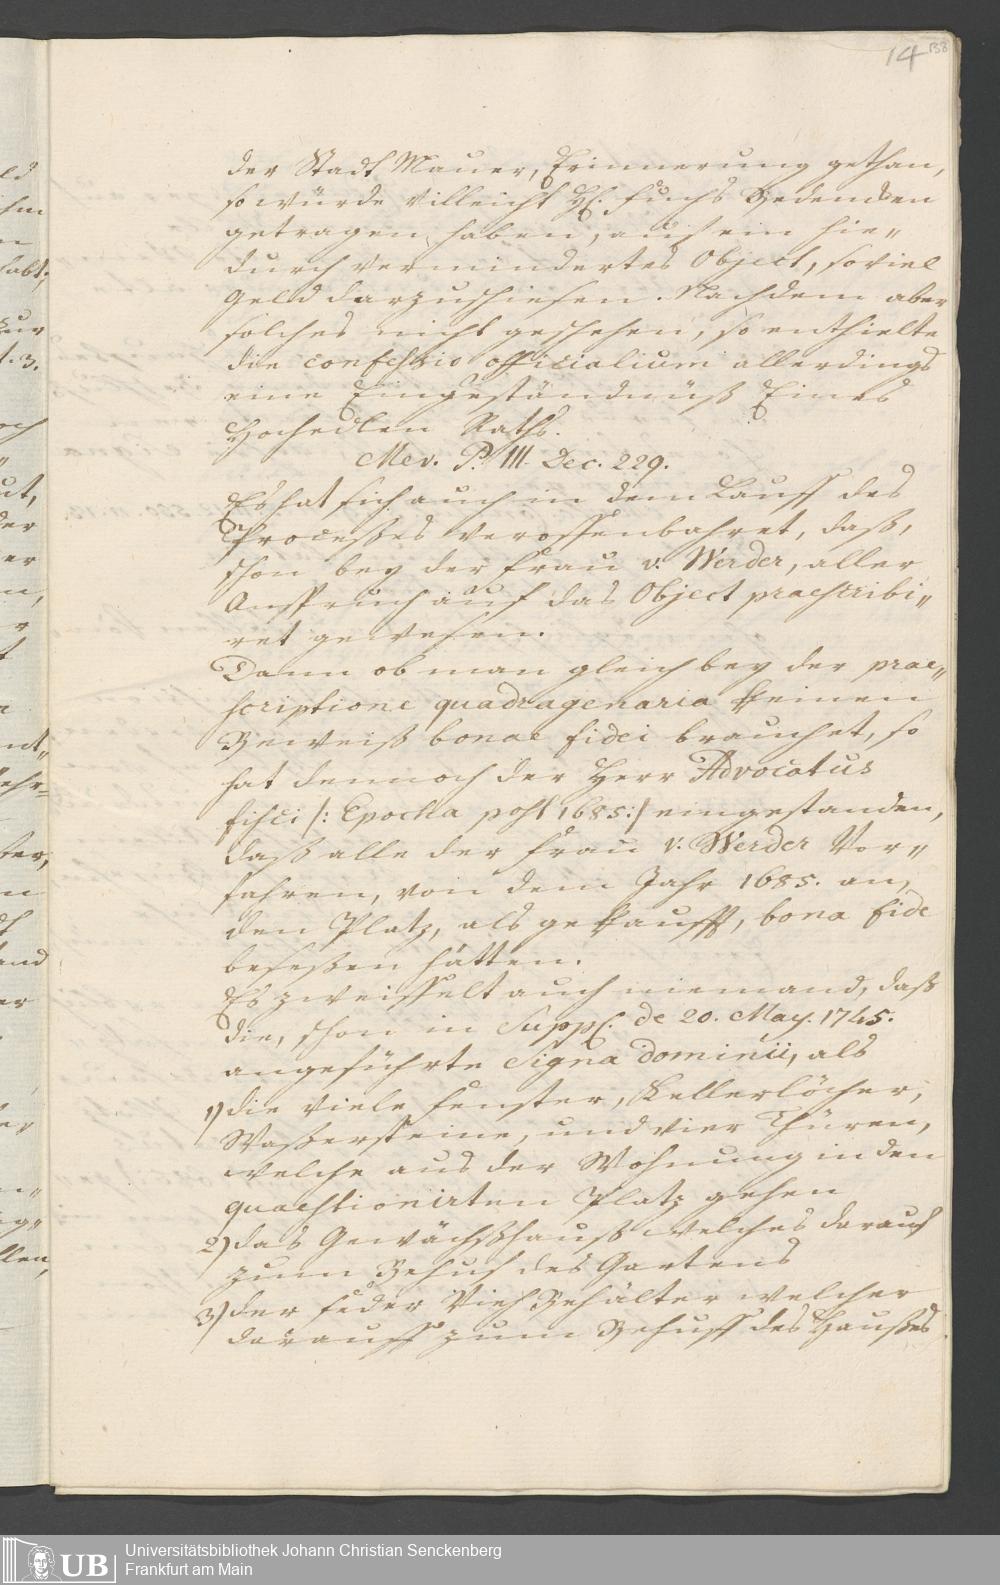 14 138
der Stadt Mauer, Erinnerung gethan,
so würde villeicht H. Fuchs Bedencken
getragen haben, auf ein hie„
durch vermindertes Object, soviel
Geld darzuschiesen. Nachdem aber
solches nicht geschehen, so enthielte
die confessio officialium allerdings
eine Eingeständnüß Eines
Hochedlen Raths.
Mev. P. III. Dec. 229.
Es hat sich auch in dem Lauff des
Processes veroffenbahret, daß,
schon bey der Frau v. Werder, aller
Anspruch auf das Object praescribi„
ret gewesen.
Dann ob man gleich bey der prae„
scriptione quadragenaria keinen
Beweiß bonae fidei brauchet, so
hat dennoch der Herr Advocatus
fisci /: Epocha post 1685:/ eingestanden,
daß alle der Frau v. Werder Vor„
fahren, von dem Jahr 1685. an,
den Platz, als gekaufft, bona fide
beseßen hätten.
Es zweiffelt auch niemand, daß
die, schon in Suppl. de 20. May. 1745.
angeführte Signa dominii, als
1) die viele Fenster, Kellerlöcher,
Waßersteine, und vier Thüren,
welche aus der Wohnung in den
quaestionirten Platz gehen
2) das Gewächßhauß welches darauf
zum Behuf des Gartens
3) der Feder Vieh Behälter welcher
darauff zum Behuff des Haußes
Universitätsbibliothek Johann Christian Senckenberg
UB Frankfurt am Main